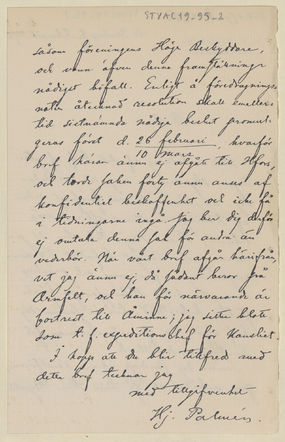 STYAC19-95-2
såsom föreningens Höge Beskyddare,
och vann äfven denna framställnings
nådigst bifall. Enligt å föredragnings-
noten åtecknad resolution skall emeller-
tid sistnämnda nådiga beslut promul-
geras först d. 26 februari, hvarför
10 mars
bref härom ännu ej afgått till Hfors,
och torde saken förty ännu anses af
konfidentiel beskaffenhet och icke få
i tidningarne ingå. Jag ber dig derför
ej omtala denna sak för andra än
vederbör. När vårt bref afgår härifrån,
vet jag ännu ej, då sådant beror från
Armfelt, och han för närvarande är
bortrest till Åminne; jag sitter blott
som t. f. expeditionschef för Kansliet.
I hopp att du blir tillfreds med
detta bref tecknar jag
med tillgifvenhet
Hj. Palmén.